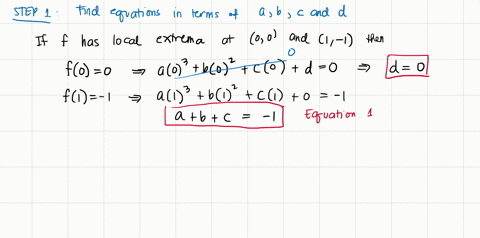 STEP 1: Find equations in terms of a, b, c and d
If f has local extrema at (0,0) and (1,-1) then
f(0)=0 ⇒ a(0)³+b(0)²+c(0)+d=0 ⇒ d=0
0
f(1)=-1 ⇒ a(1)³+b(1)²+c(1)+0=-1
a+b+c = -1 Equation 1